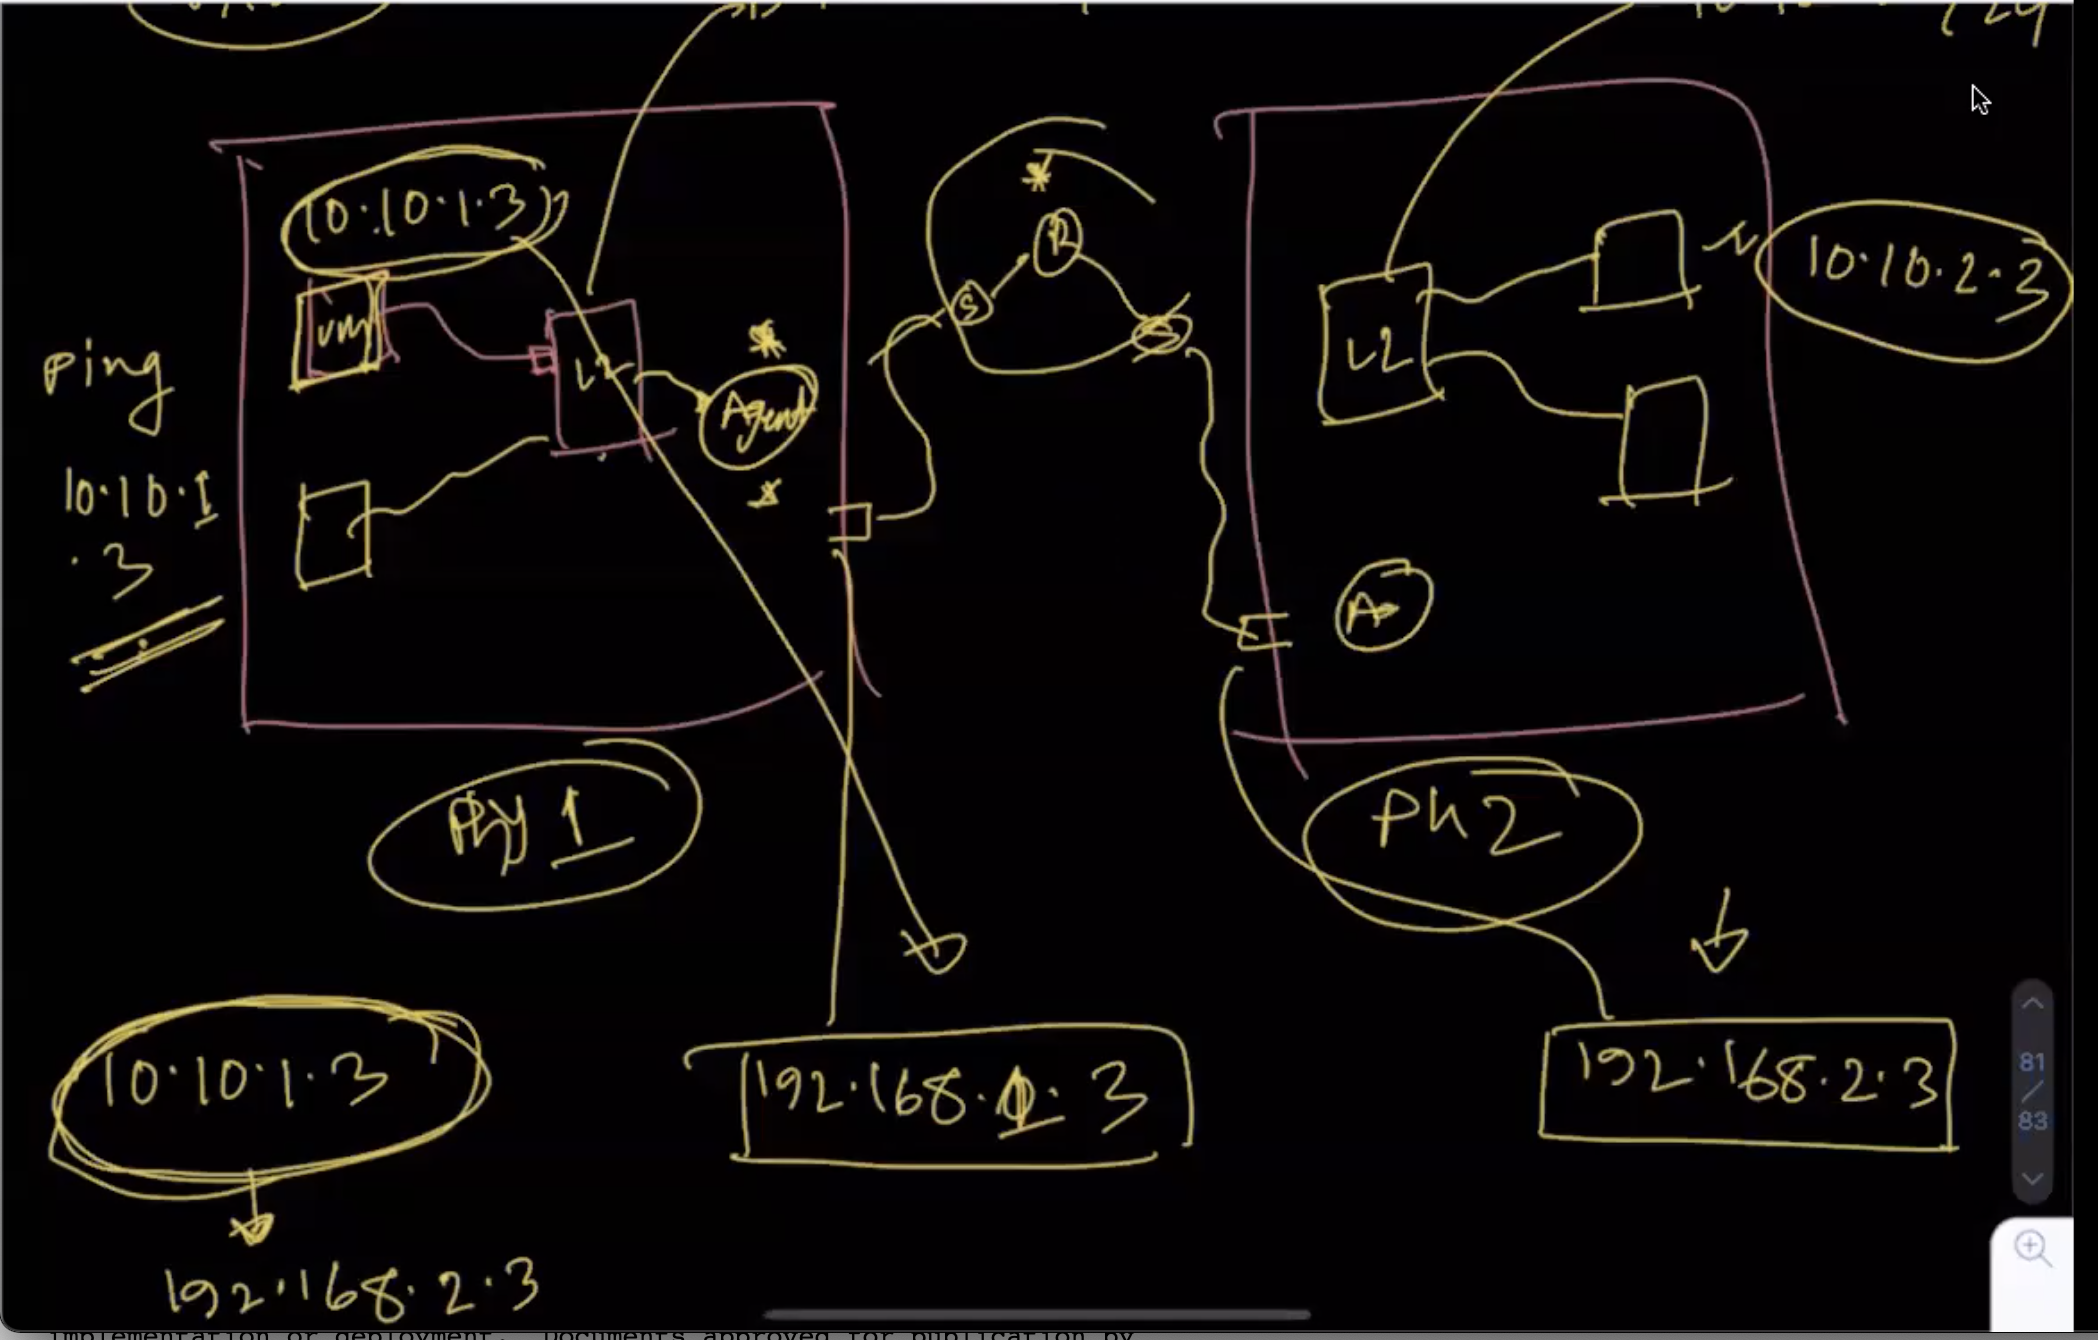 /24
10.10.1.3
vm
L2
Agent
ping
10.10.1
.3
S
R
S
L2
10.10.2.3
A
Phy 1
Ph 2
10.10.1.3
192.168.2.3
192.168.1.3
192.168.2.3
81
/
83
implementation or deployment. Documents approved for publication by